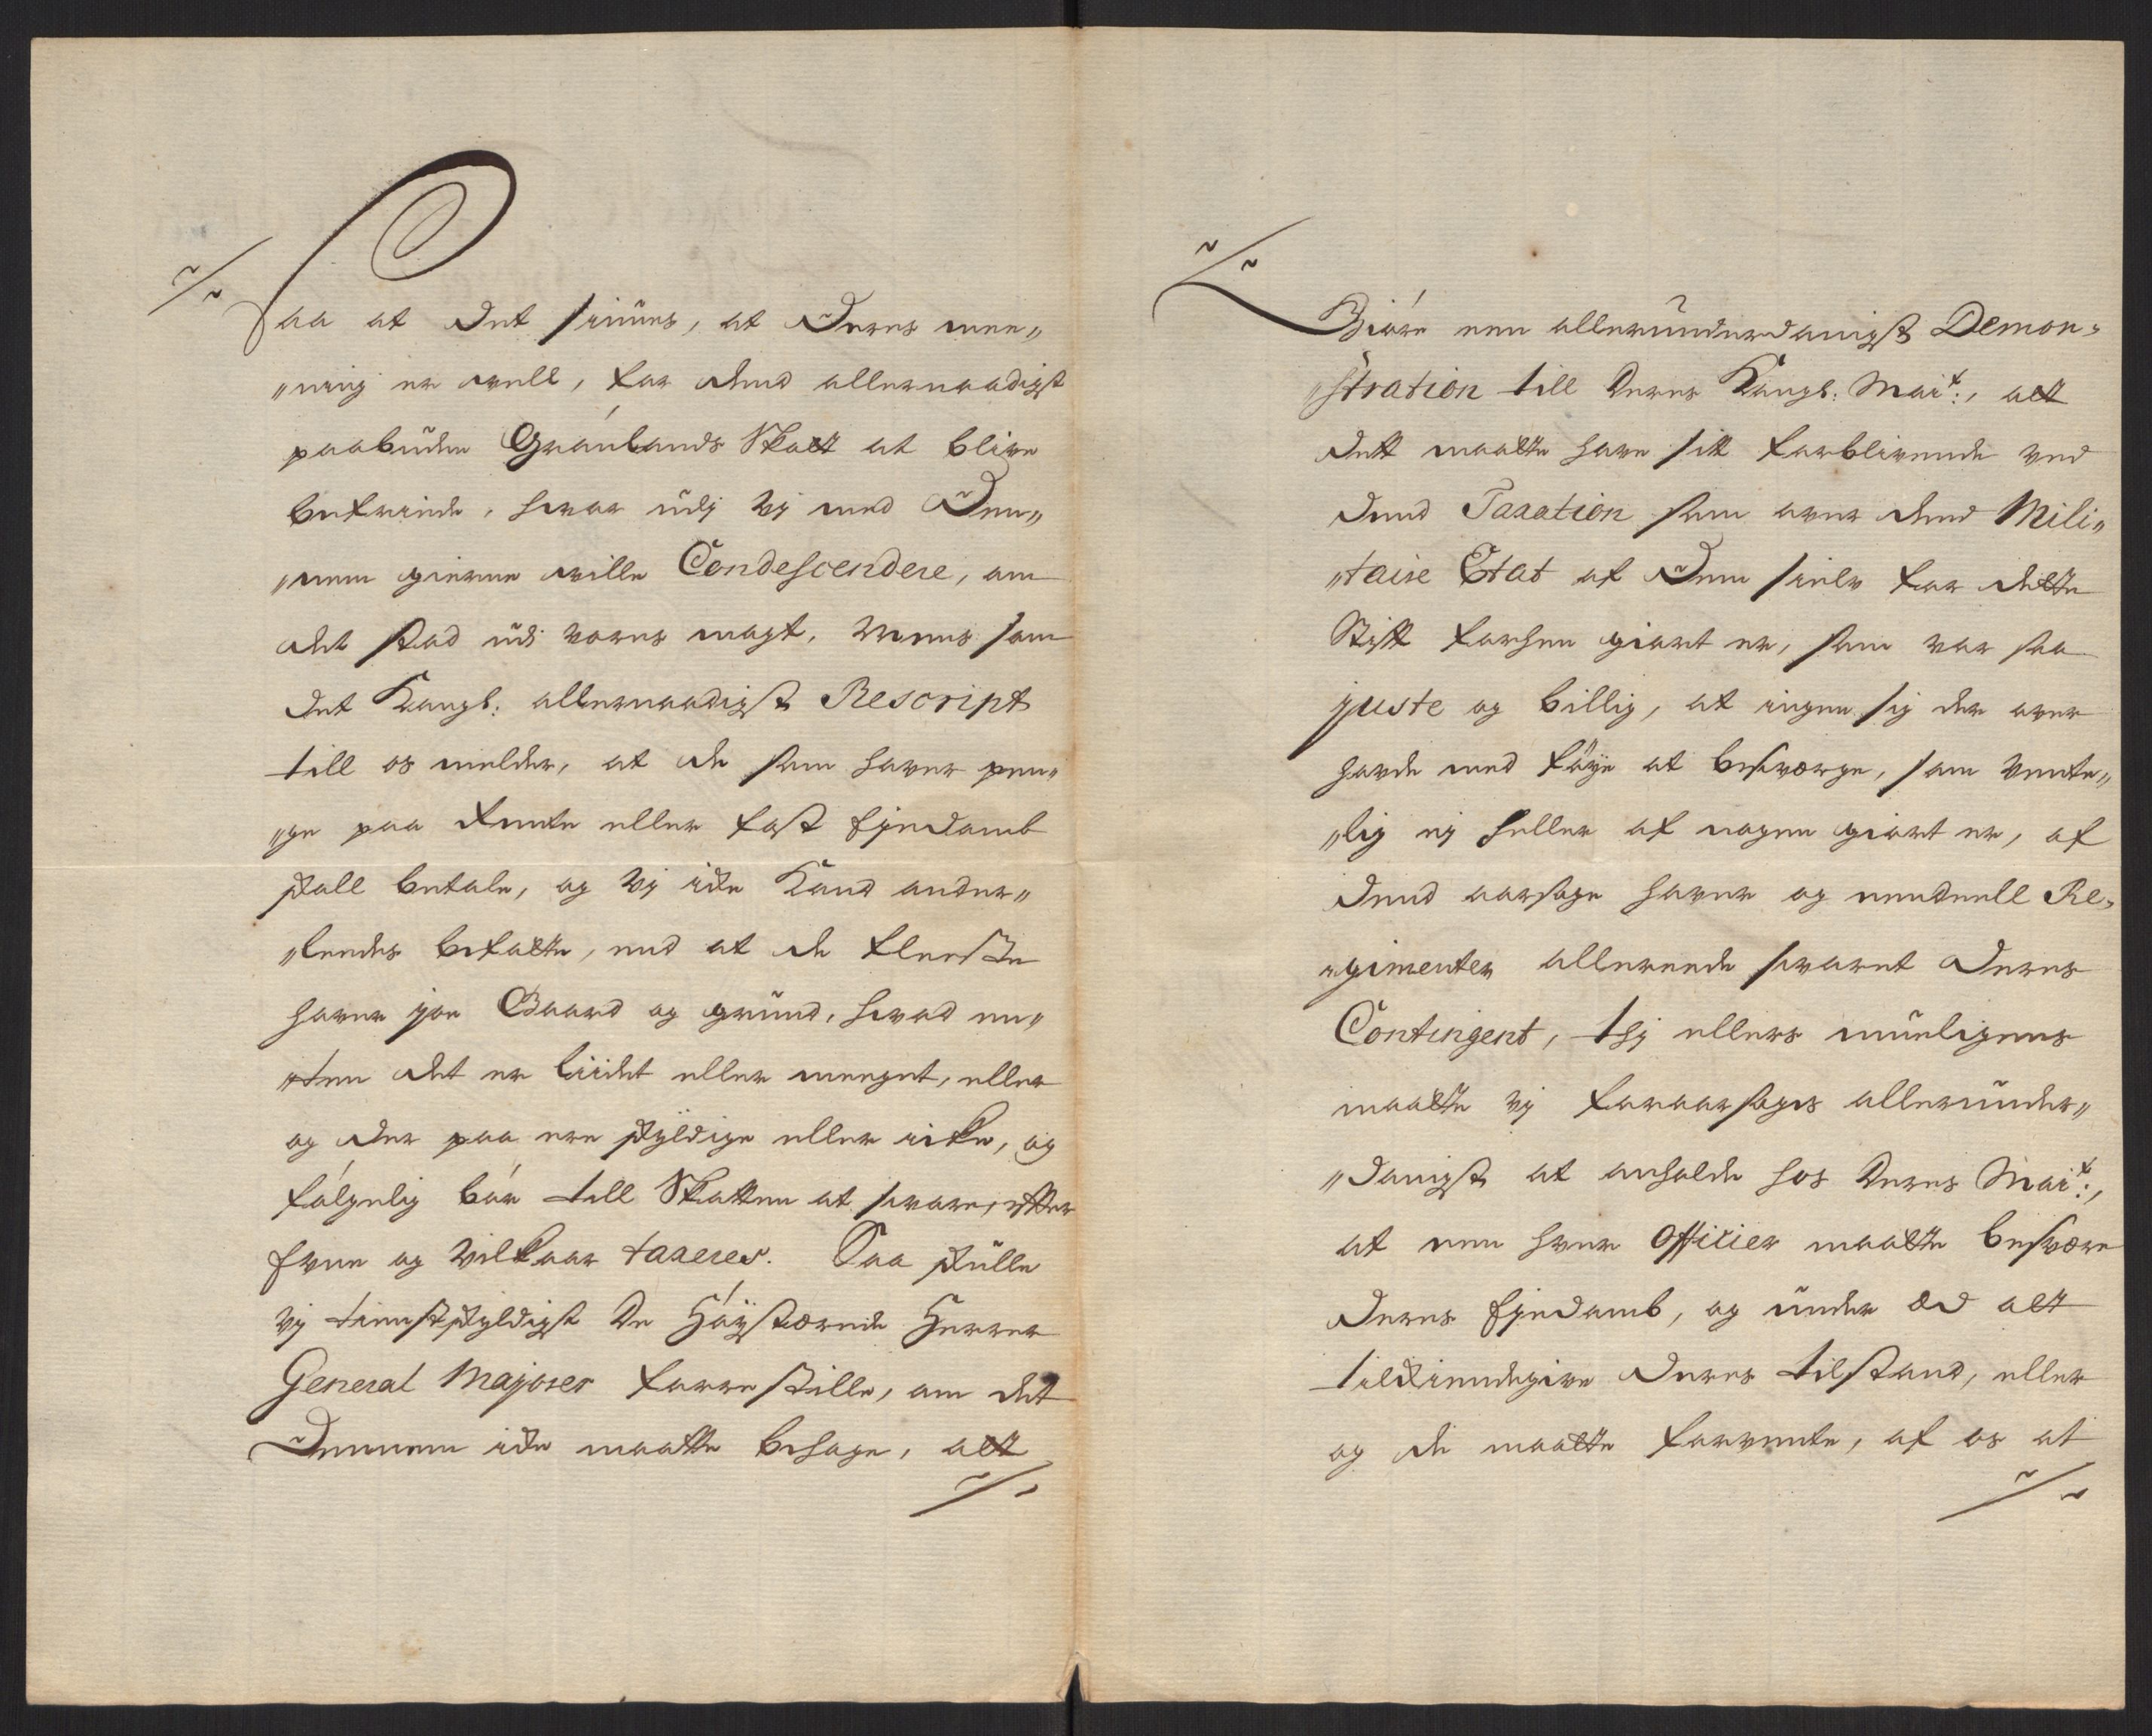 Saa at det siunes, at Deres mee„
„ning er well, for dend allernaadigst
paabudne Grønlands Skatt at blive
befriede, hvor udj vj med Den„
„nem gierne wille Condescendere, om
det stod udi vores magt, Mens som
det Kongl: allernaadigste Rescript
till os melder, at de som haver pen„
„ge paa Rente eller fast Ejendomb
skall betale, og vj icke Kand ander„
„ledes befatte, end at de fleeste
haver jo Gaard og grund, hvad en„
„ten det er liidet eller meeget, eller
og der paa ere skyldige eller icke, og
følgelig bør till Skatten at svare, effter
Evne og Vilkaar taxeres. Saa skulle
vj tienstskyldigst De Høystærede Herrer
General Majorer forrestille, om det
Dennem icke maatte behage, att
Giøre een allerunderdanigste Demon„
„stration till Deres Kongl: Mait:, att
dett maatte have sitt forblivende ved
dend Taxation som over dend Mili„
„taire Etat af Dem selv for dette
Stift forhen giort er, som var saa
juste og billig, at ingen sig der over
havde med føye at besværge, som vente„
„lig ej heller af nogen giort er, af
dend aarsage haver og eendeell Re„
„gimenter allereede svaret deres
Contingent, thj ellers mueligens
maatte vj foraarsages allerunder„
„danigst at anholde hos Deres Mait:,
at een hver Officier maatte besvære
deres Ejendomb, og under Æd att
tilkiendegive deres tilstand, eller
og de maatte forvente, af os at